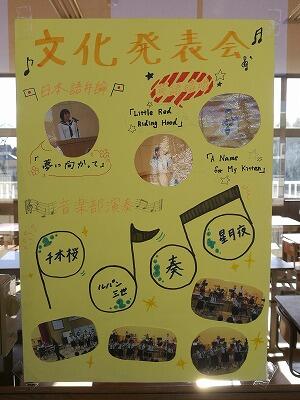 文化発表会
日本語弁論
「Little Red
Riding Hood」
「A Name
for My Kitten」
「夢に向かって」
音楽部演奏
千本桜
ルパン
三世
奏
星月夜